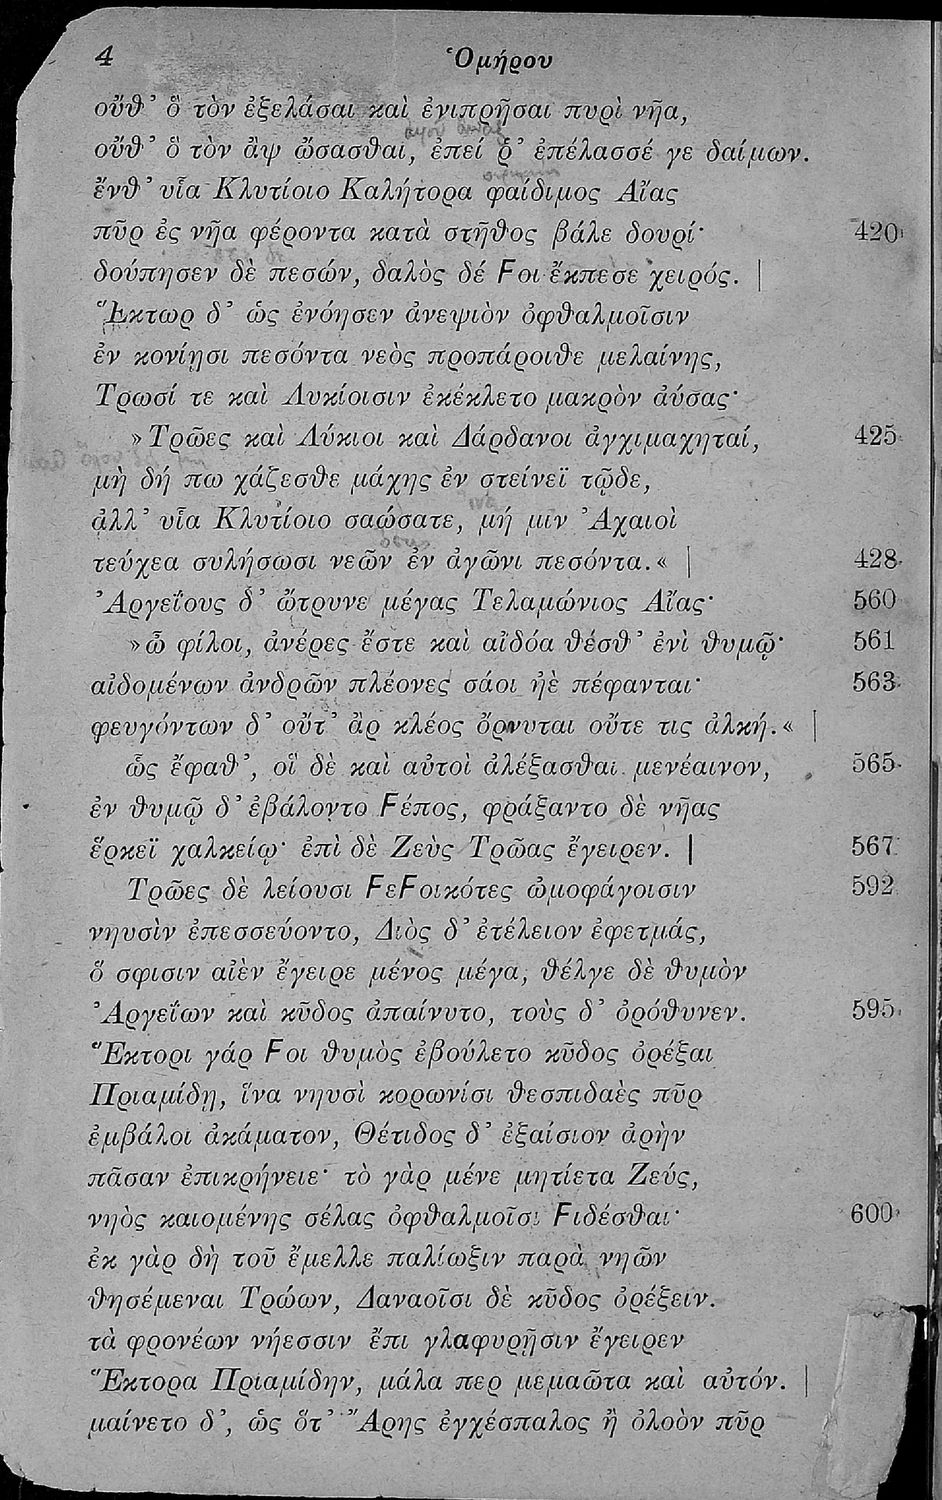 4 Ὁμήρου
οὔθ’ ὃ τὸν ἐξελάσαι καὶ ἐνιπρῆσαι πυρὶ νῆα,
οὔθ’ ὃ τὸν ἂψ ὤσασθαι, ἐπεί ῥ’ ἐπέλασσέ γε δαίμων.
ἔνθ’ υἷα Κλυτίοιο Καλήτορα φαίδιμος Αἴας
πῦρ ἐς νῆα φέροντα κατὰ στῆθος βάλε δουρί· 420
δούπησεν δὲ πεσών, δαλὸς δέ Ϝοι ἔκπεσε χειρός. |
Ἕκτωρ δ’ ὡς ἐνόησεν ἀνεψιὸν ὀφθαλμοῖσιν
ἐν κονίῃσι πεσόντα νεὸς προπάροιθε μελαίνης,
Τρωσί τε καὶ Λυκίοισιν ἐκέκλετο μακρὸν ἀύσας·
»Τρῶες καὶ Λύκιοι καὶ Δάρδανοι ἀγχιμαχηταί, 425
μὴ δή πω χάζεσθε μάχης ἐν στείνεϊ τῷδε,
ἀλλ’ υἷα Κλυτίοιο σαώσατε, μή μιν Ἀχαιοὶ
τεύχεα συλήσωσι νεῶν ἐν ἀγῶνι πεσόντα.« | 428
Ἀργεΐους δ’ ὤτρυνε μέγας Τελαμώνιος Αἴας· 560
»ὦ φίλοι, ἀνέρες ἔστε καὶ αἰδόα θέσθ’ ἐνὶ θυμῷ· 561
αἰδομένων ἀνδρῶν πλέονες σάοι ἠὲ πέφανται· 563
φευγόντων δ’ οὔτ’ ἂρ κλέος ὄρνυται οὔτε τις ἀλκή.« |
ὣς ἔφαθ’, οἳ δὲ καὶ αὐτοὶ ἀλέξασθαι μενέαινον, 565
ἐν θυμῷ δ’ ἐβάλοντο Ϝέπος, φράξαντο δὲ νῆας
ἕρκεϊ χαλκείῳ· ἐπὶ δὲ Ζεὺς Τρῶας ἔγειρεν. | 567
Τρῶες δὲ λείουσι ϜεϜοικότες ὠμοφάγοισιν 592
νηυσὶν ἐπεσσεύοντο, Διὸς δ’ ἐτέλειον ἐφετμάς,
ὅ σφισιν αἰὲν ἔγειρε μένος μέγα, θέλγε δὲ θυμὸν
Ἀργεΐων καὶ κῦδος ἀπαίνυτο, τοὺς δ’ ὀρόθυνεν. 595
Ἕκτορι γάρ Ϝοι θυμὸς ἐβούλετο κῦδος ὀρέξαι
Πριαμίδῃ, ἵνα νηυσὶ κορωνίσι θεσπιδαὲς πῦρ
ἐμβάλοι ἀκάματον, Θέτιδος δ’ ἐξαίσιον ἀρὴν
πᾶσαν ἐπικρήνειε· τὸ γὰρ μένε μητίετα Ζεύς,
νηὸς καιομένης σέλας ὀφθαλμοῖσι Ϝιδέσθαι· 600
ἐκ γὰρ δὴ τοῦ ἔμελλε παλίωξιν παρὰ νηῶν
θησέμεναι Τρώων, Δαναοῖσι δὲ κῦδος ὀρέξειν.
τὰ φρονέων νήεσσιν ἔπι γλαφυρῇσιν ἔγειρεν
Ἕκτορα Πριαμίδην, μάλα περ μεμαῶτα καὶ αὐτόν. |
μαίνετο δ’, ὡς ὅτ’ Ἄρης ἐγχέσπαλος ἢ ὀλοὸν πῦρ